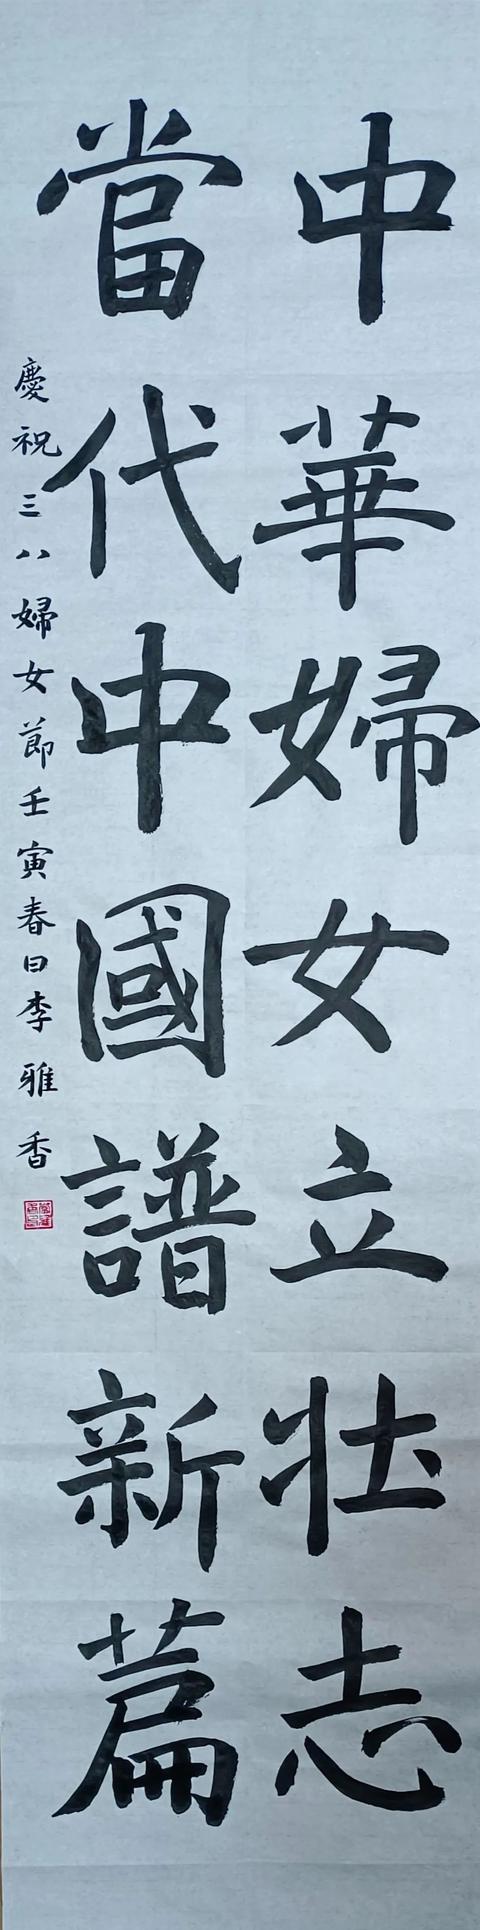 中華婦女立壯志
當代中國譜新篇
慶祝三八婦女節壬寅春日李雅香